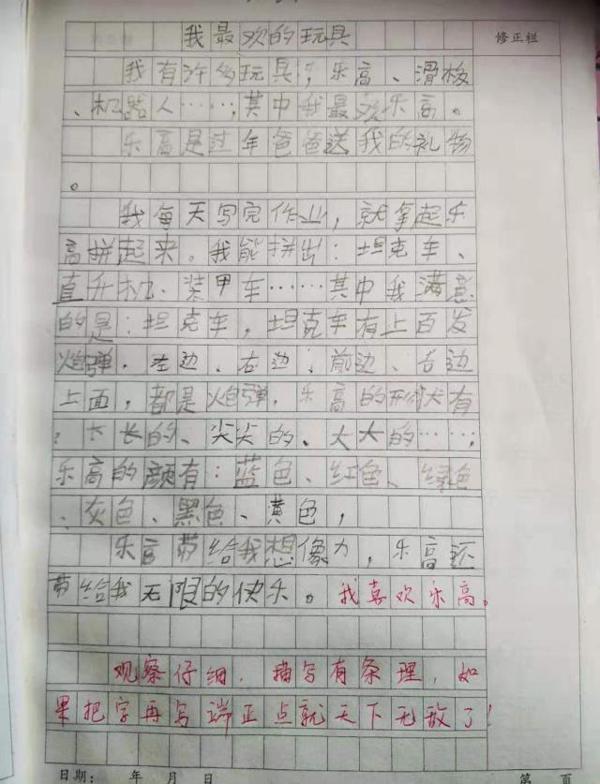 我最欢的玩具
修正栏
我有许多玩具，乐高、滑板
、机器人……，其中我最欢乐高。
乐高是过年爸爸送我的礼物
。
我每天写完作业，就拿起乐
高拼起来。我能拼出：坦克车、
直升机、装甲车……其中我满意
的是：坦克车，坦克车有上百发
炮弹．左边、右边；前边、右边
上面，都是火炮弹．乐高的形状有
：长长的、尖尖的、大大的……；
乐高的颜有：蓝色、红色、绿色
、灰色、黑色、黄色，
乐高带给我想像力，乐高还
带给我无限的快乐。我喜欢乐高。
观察仔细．描写有条理，如
果把字再写端正点就天下无敌了！
日期： 年 月 日 第 页